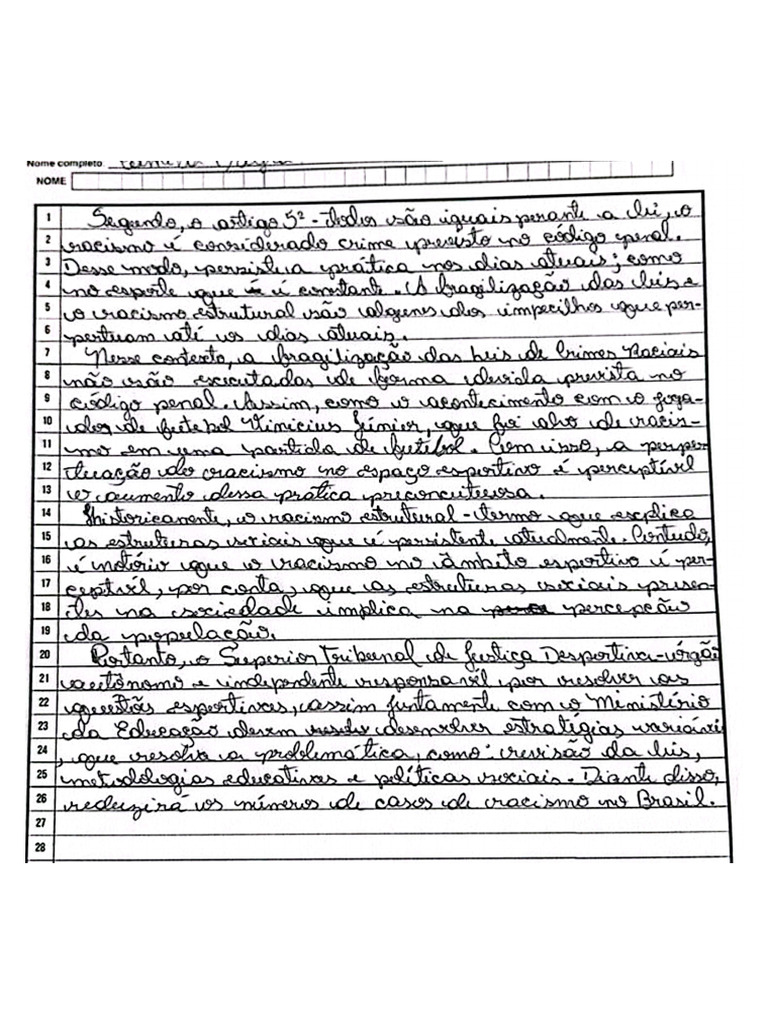 Nome completo
NOME
1 Segundo, o artigo 5º - Todos são iguais perante a lei, o
2 racismo é considerado crime previsto no código penal.
3 Desse modo, persiste a prática nos dias atuais; como
4 no esporte que é constante. A fragilização das leis e
5 o racismo estrutural são alguns dos impecilhos que per-
6 pertuam até os dias atuais.
7 Nesse contexto, a fragilização das Leis de Crimes Raciais
8 não são executadas de forma devida prevista no
9 código penal. Assim, como o acontecimento com o joga-
10 dor de futebol Vinicius Júnior, que foi alvo de racis-
11 mo em uma partida de futebol. Com isso, a perpe-
12 tuação do racismo no espaço esportivo é perceptível
13 o aumento dessa prática preconceituosa.
14 Historicamente, o racismo estrutural - termo que explica
15 as estruturas sociais que é persistente atualmente. Contudo,
16 é notório que o racismo no âmbito esportivo é per-
17 ceptivél, por conta, que as estruturas sociais presen-
18 tes na sociedade implica na percepção
19 da população.
20 Portanto, o Superior Tribunal de Justiça Desportiva - orgão
21 autônomo e independente responsavél por resolver as
22 questões esportivas, assim juntamente com o Ministério
23 da Educação devem desenvolver estratégias variavéis
24 , que resolva a problemática, como: revisão da leis,
25 metodologias educativas e políticas sociais. Diante disso,
26 reduzirá os números de casos de racismo no Brasil.
27
28